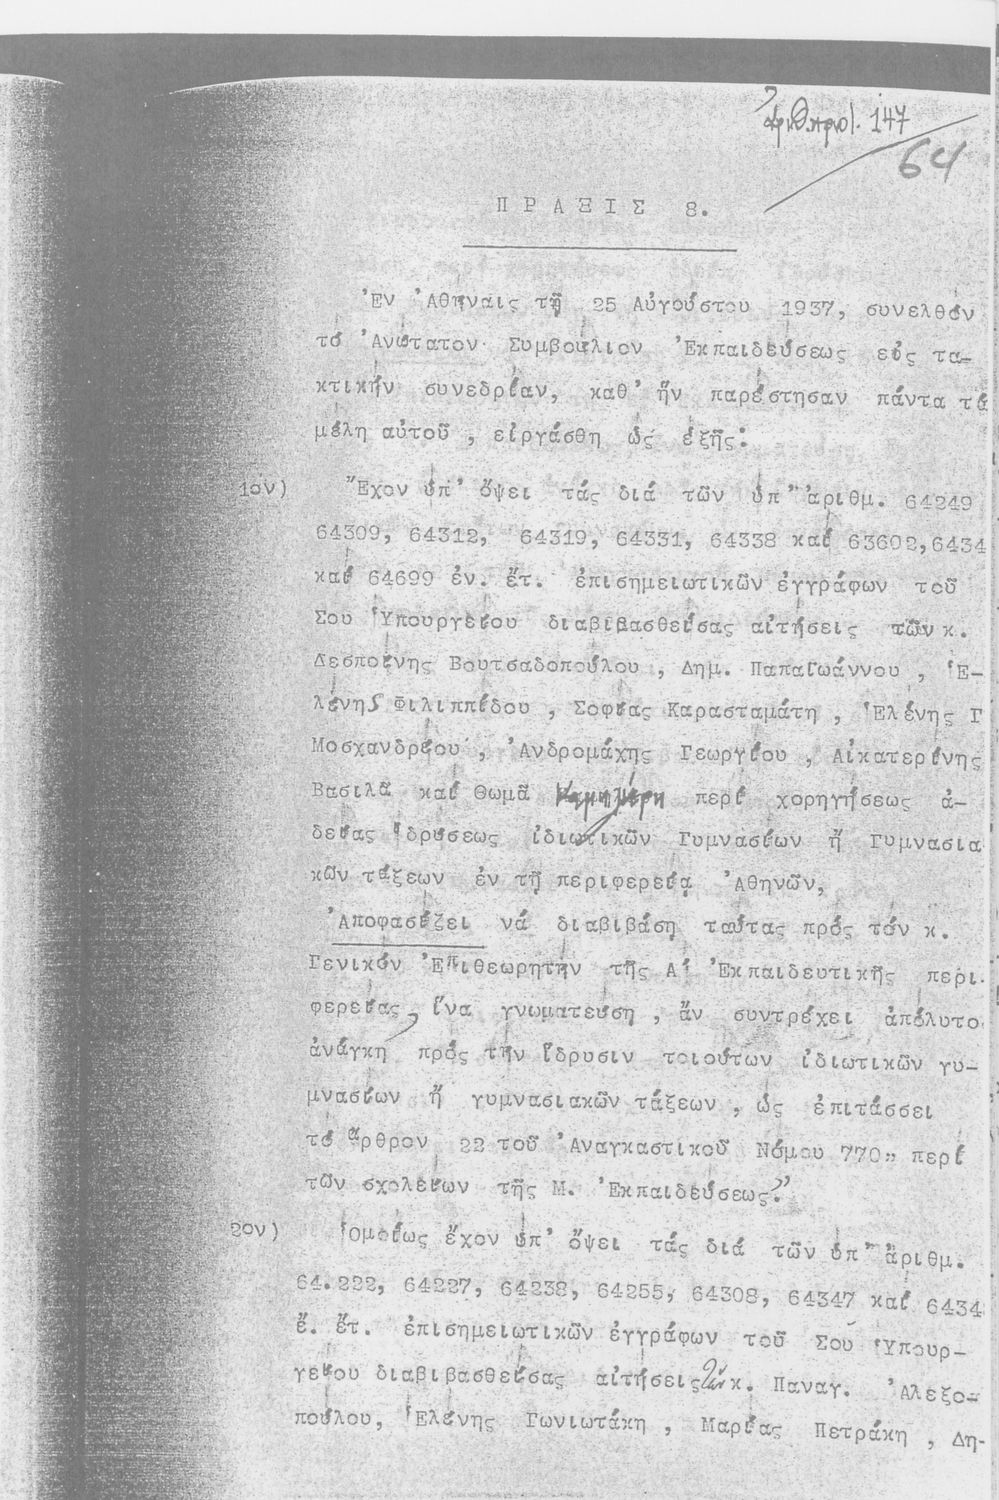 ἀριθ.πρωτ. 147
64
ΠΡΑΞΙΣ 8.
Ἐν Ἀθήναις τῇ 25 Αὐγούστου 1937, συνελθόν
τό Ἀνώτατον Συμβούλιον Ἐκπαιδεύσεως εἰς τα-
κτικήν συνεδρίαν, καθ' ἥν παρέστησαν πάντα τά
μέλη αὐτοῦ, εἰργάσθη ὡς ἑξῆς:
1ον) Ἔχον ὑπ' ὄψει τάς διά τῶν ὑπ' ἀριθμ. 64249
64309, 64312, 64319, 64331, 64338 καί 63602,6434
καί 64699 ἐν. ἔτ. ἐπισημειωτικῶν ἐγγράφων τοῦ
Σου Ὑπουργείου διαβιβασθείσας αἰτήσεις τῶν κ.
Δεσποίνης Βουτσαδοπούλου, Δημ. Παπαϊωάννου, Ἑ-
λένης Φιλιππίδου, Σοφίας Καρασταμάτη, Ἑλένης Γ
Μοσχανδρέου, Ἀνδρομάχης Γεωργίου, Αἰκατερίνης
Βασιλᾶ καί Θωμᾶ περί χορηγήσεως ἀ-
δείας ἱδρύσεως ἰδιωτικῶν Γυμνασίων ἤ Γυμνασια
κῶν τάξεων ἐν τῇ περιφερείᾳ Ἀθηνῶν,
Ἀποφασίζει νά διαβιβάσῃ ταύτας πρός τόν κ.
Γενικόν Ἐπιθεωρητήν τῆς Α' Ἐκπαιδευτικῆς περι-
φερείας, ἵνα γνωματεύσῃ, ἄν συντρέχει ἀπόλυτο
ἀνάγκη πρός τήν ἵδρυσιν τοιούτων ἰδιωτικῶν γυ-
μνασίων ἤ γυμνασιακῶν τάξεων, ὡς ἐπιτάσσει
τό ἄρθρον 22 τοῦ Ἀναγκαστικοῦ Νόμου 770 " περί
τῶν σχολείων τῆς Μ. Ἐκπαιδεύσεως."
2ον) Ὁμοίως ἔχον ὑπ' ὄψει τάς διά τῶν ὑπ' ἀριθμ.
64.222, 64227, 64238, 64255, 64308, 64347 καί 6434
ἔ. ἔτ. ἐπισημειωτικῶν ἐγγράφων τοῦ Σου Ὑπουρ-
γείου διαβιβασθείσας αἰτήσεις τῶν κ. Παναγ. Ἀλεξο-
πούλου, Ἑλένης Γωνιωτάκη, Μαρίας Πετράκη, Δη-